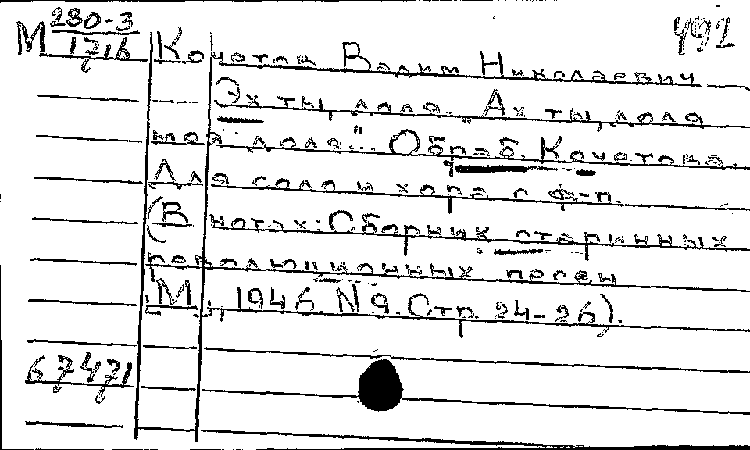 М 280-3
1716
492
Кочетов Вадим Николаевич
Эх ты, доля.. "Ах ты, доля
моя доля". Обраб. Кочетова.
Для соло и хора с ф-п.
(В нотах: Сборник старинных
революционных песен
[М.], 1946 № 9. Стр 24-26).
67471